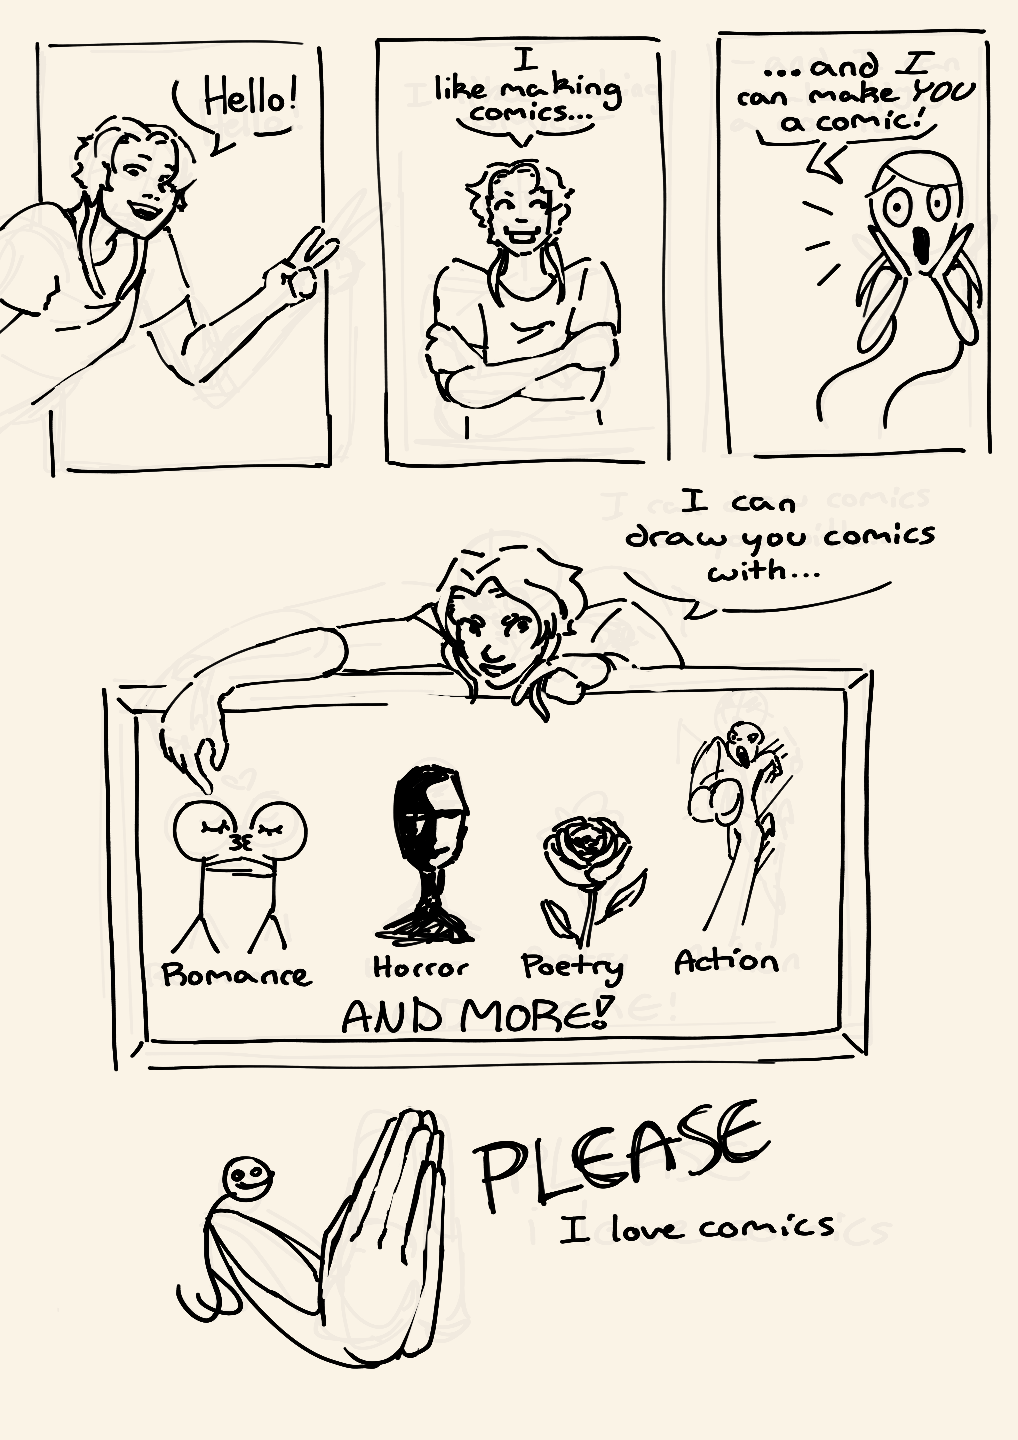 Hello!
I
like making
comics...
...and I
can make YOU
a comic!
I can
draw you comics
with...
Romance
Horror
Poetry
Action
AND MORE!
PLEASE
I love comics